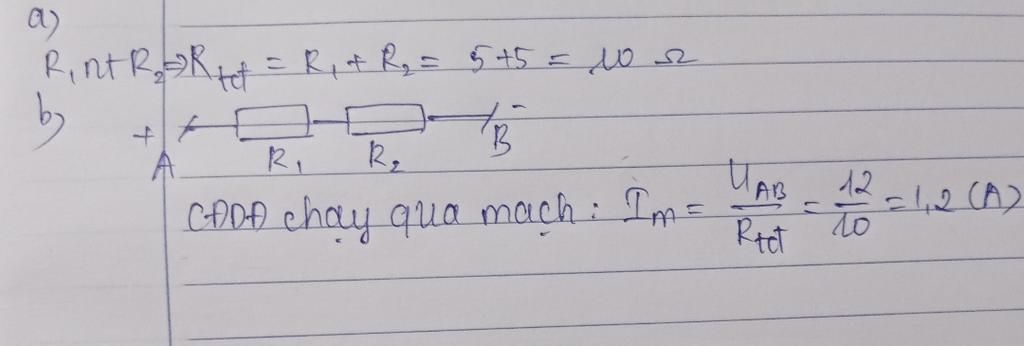 a)
R₁ nt R₂ ⇒ R_tđ = R₁ + R₂ = 5 + 5 = 10 Ω
b)
+ A R₁ R₂ B -
CĐDĐ chạy qua mạch : I_m = U_AB / R_tđ = 12 / 10 = 1,2 (A)